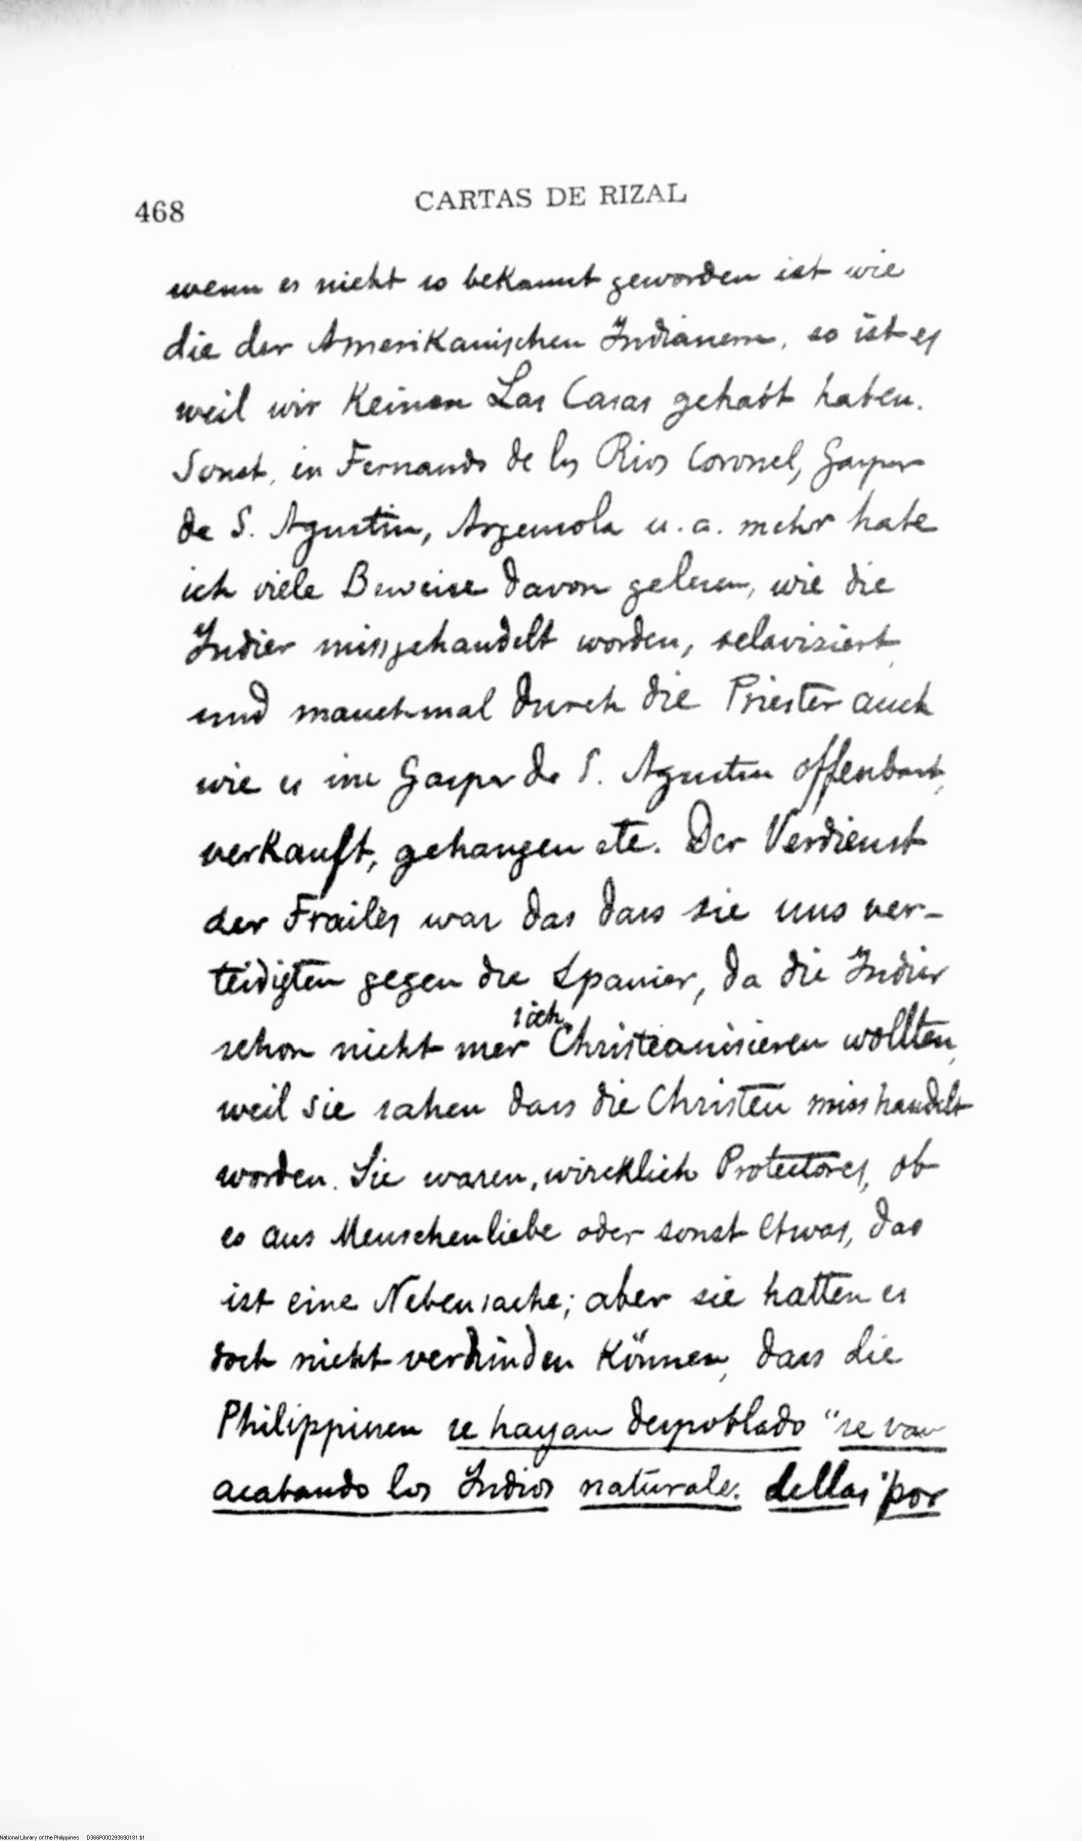 468
CARTAS DE RIZAL
wenn es nicht so bekannt geworden ist wie
die der Amerikanischen Indianern, so ist es
weil wir Keinen Las Casas gehabt haben.
Sonst, in Fernando de los Rios Coronel, Gaspar
de S. Agustin, Argensola u. a. mehr habe
ich viele Beweise davon gelesen, wie die
Indier missgehandelt worden, sclavisiert
und manchmal durch die Priester auch
wie es im Gaspar de S. Agustin offenbart,
verkauft, gehangen etc. Der Verdienst
der Frailes war das dass sie uns ver-
teidigten gegen die Spanier, da die Indier
schon nicht mer sich Christianisieren wollten,
weil sie sahen dass die Christen misshandelt
worden. Sie waren, wircklich Protectores, ob
es aus Menschenliebe oder sonst Etwas, das
ist eine Nebensache; aber sie hatten es
doch nicht verhinden Können, dass die
Philippinen se hayan despoblado "se van
acabando los Indios naturales dellas "por
National Library of the Philippines